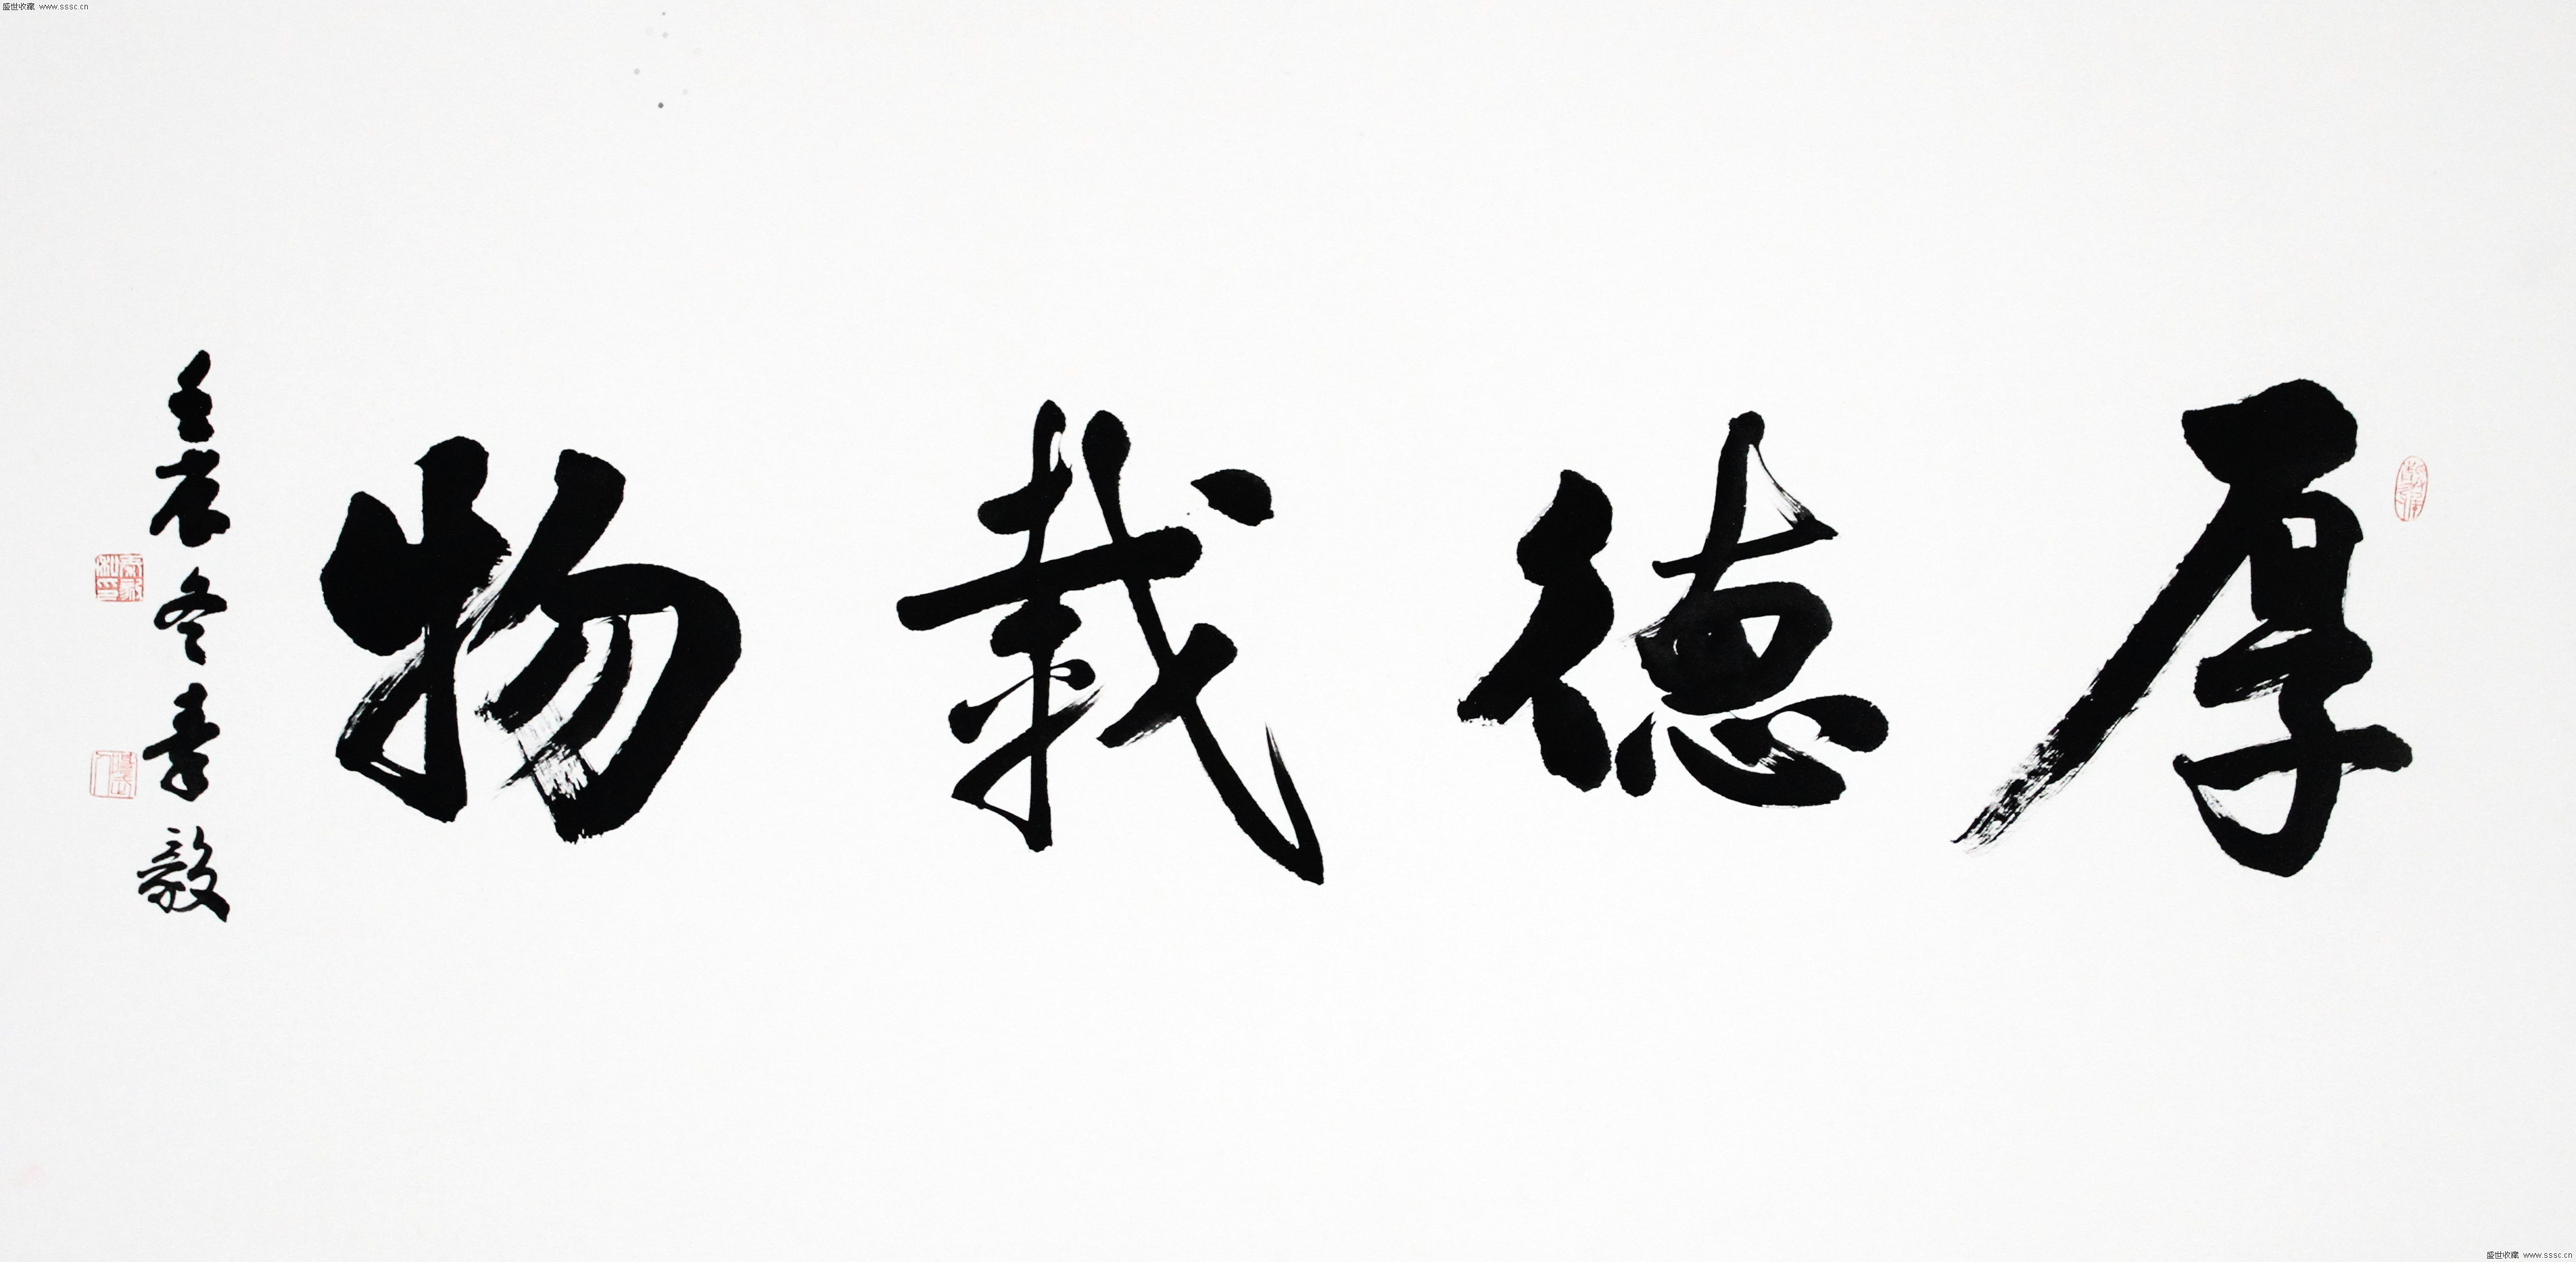 盛世收藏 www.sssc.cn
厚德载物
壬辰冬 毅
盛世收藏 www.sssc.cn